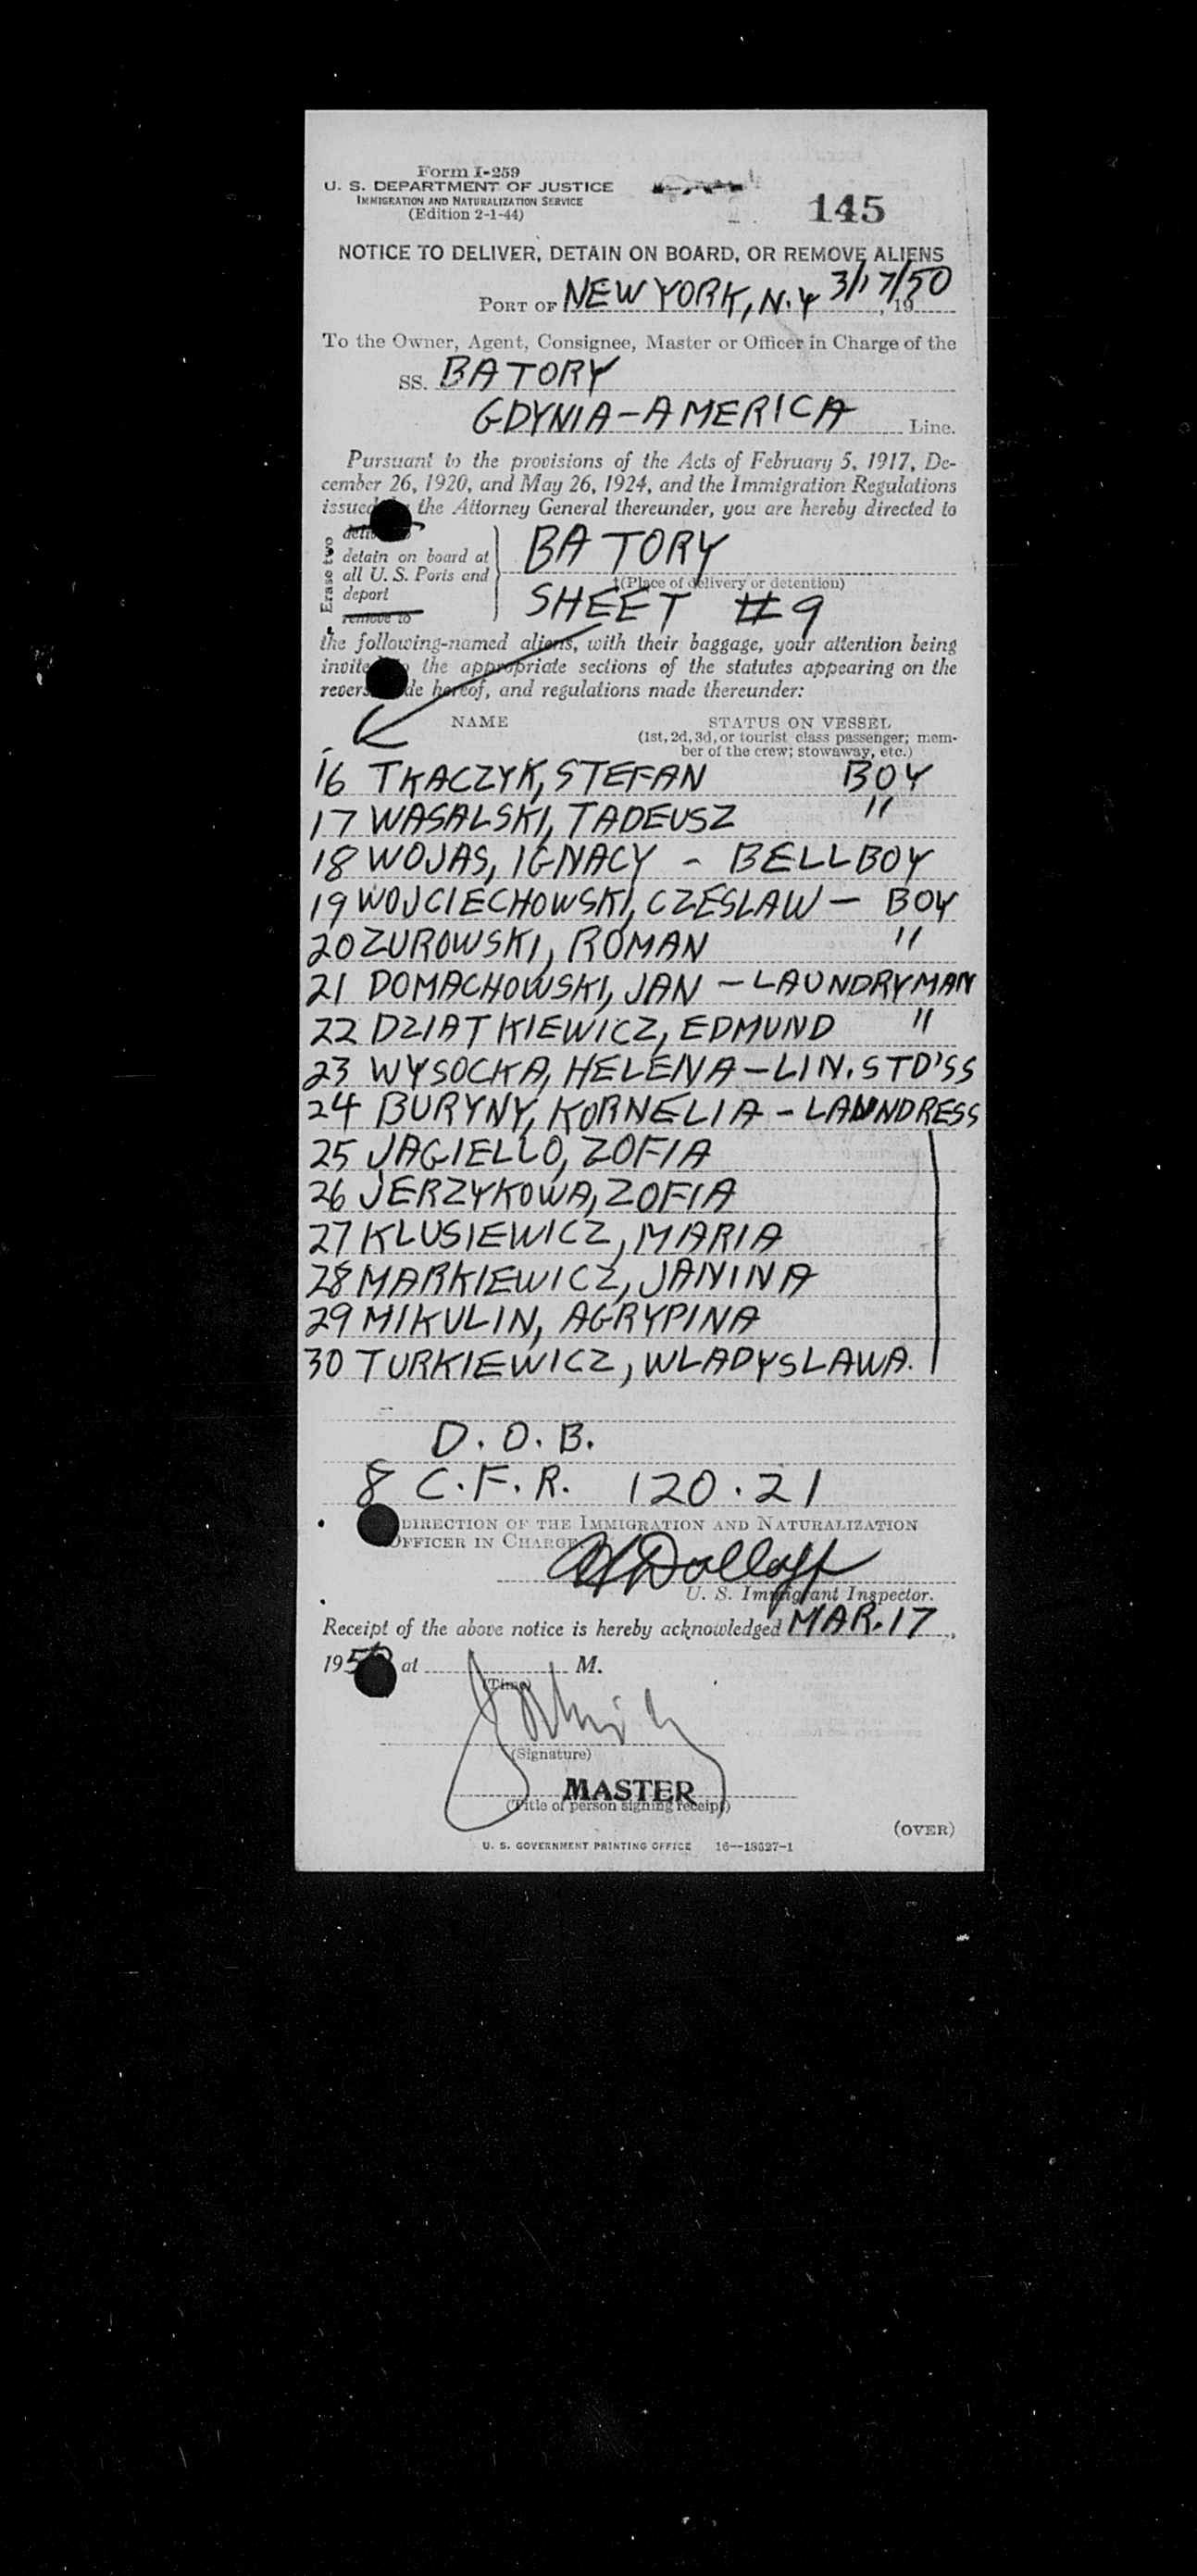 Form I-259
U. S. DEPARTMENT OF JUSTICE
IMMIGRATION AND NATURALIZATION SERVICE
(Edition 2-1-44)
145
NOTICE TO DELIVER, DETAIN ON BOARD, OR REMOVE ALIENS
PORT OF NEW YORK, N.Y 3/17/50, 19
To the Owner, Agent, Consignee, Master or Officer in Charge of the
SS. BATORY
GDYNIA-AMERICA Line.
Pursuant to the provisions of the Acts of February 5, 1917, De-
cember 26, 1920, and May 26, 1924, and the Immigration Regulations
issued the Attorney General thereunder, you are hereby directed to
Erase two
detain on board at
all U. S. Ports and
deport
remove to
BATORY
†(Place of delivery or detention)
SHEET #9
the following-named aliens, with their baggage, your attention being
the appropriate sections of the statutes appearing on the
hereof, and regulations made thereunder:
NAME STATUS ON VESSEL
(1st, 2d, 3d, or tourist class passenger; mem-
ber of the crew; stowaway, etc.)
16 TKACZYK, STEFAN BOY
17 WASALSKI, TADEUSZ "
18 WOJAS, IGNACY - BELLBOY
19 WOJCIECHOWSKI, CZESLAW - BOY
20 ZUROWSKI, ROMAN "
21 DOMACHOWSKI, JAN - LAUNDRYMAN
22 DZIATKIEWICZ, EDMUND "
23 WYSOCKA, HELENA - LIN. STD'SS
24 BURYNY, KORNELIA - LAUNDRESS
25 JAGIELLO, ZOFIA
26 JERZYKOWA, ZOFIA
27 KLUSIEWICZ, MARIA
28 MARKIEWICZ, JANINA
29 MIKULIN, AGRYPINA
30 TURKIEWICZ, WLADYSLAWA.
D.O.B.
8 C.F.R. 120.21
DIRECTION OF THE IMMIGRATION AND NATURALIZATION
OFFICER IN CHARGE
U. S. Immigrant Inspector.
Receipt of the above notice is hereby acknowledged MAR. 17,
1950 at M.
(Time)
(Signature)
MASTER
(Title of person signing receipt)
(OVER)
U. S. GOVERNMENT PRINTING OFFICE 16—18527-1